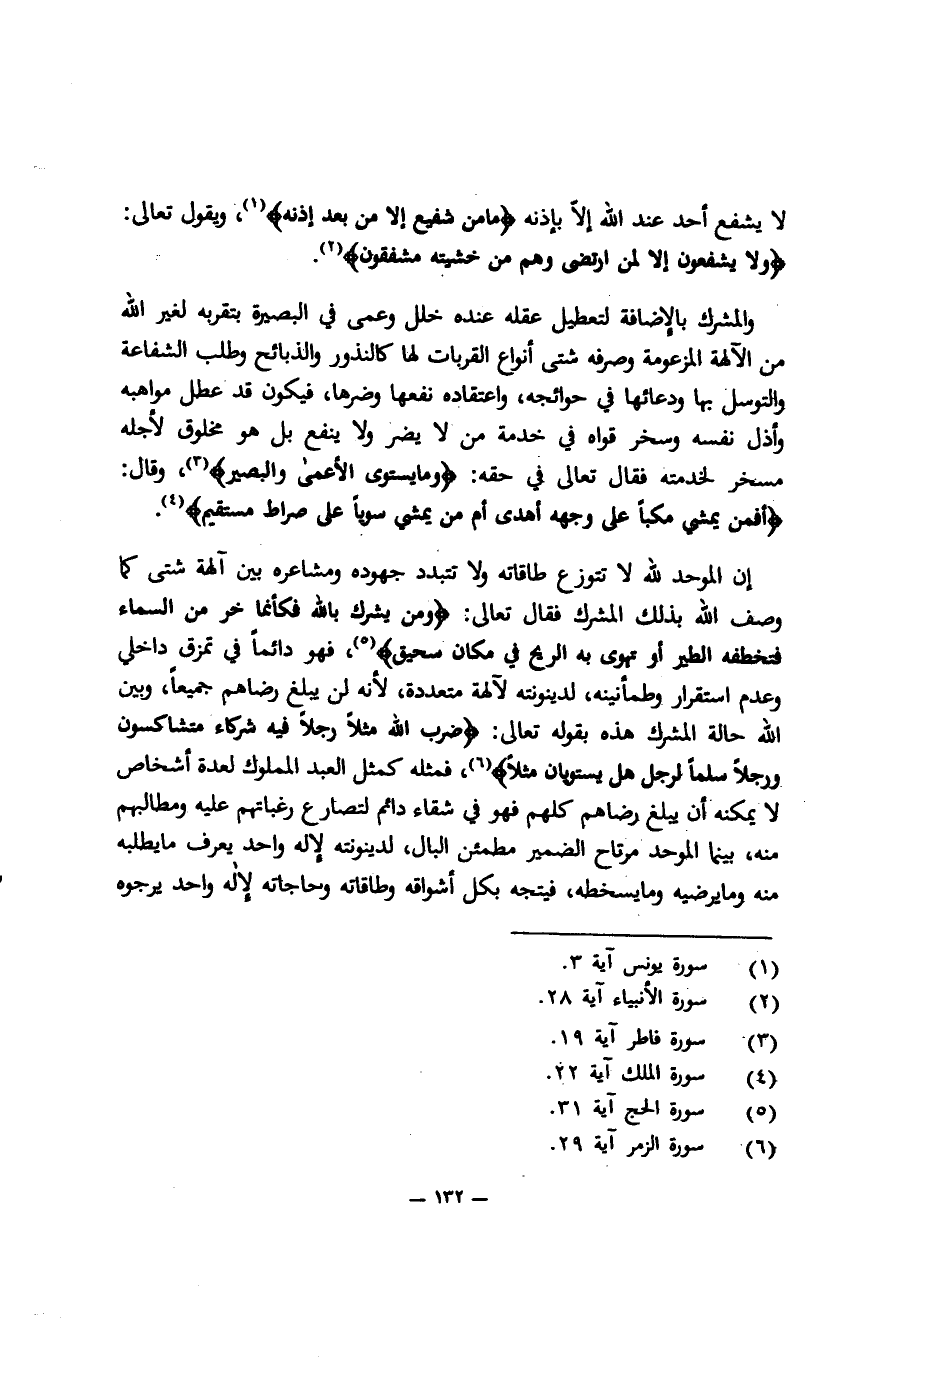 لا يشفع أحد عند الله إلاّ بإذنه ﴿مامن شفيع إلا من بعد إذنه﴾(١)، ويقول تعالى:
﴿ولا يشفعون إلا لمن ارتضى وهم من خشيته مشفقون﴾(٢).
والمشرك بالإضافة لتعطيل عقله عنده خلل وعمى في البصيرة بتقربه لغير الله
من الآلهة المزعومة وصرفه شتى أنواع القربات لها كالنذور والذبائح وطلب الشفاعة
والتوسل بها ودعائها في حوائجه، واعتقاده نفعها وضرها، فيكون قد عطل مواهبه
وأذل نفسه وسخر قواه في خدمة من لا يضر ولا ينفع بل هو مخلوق لأجله
مسخر لخدمته فقال تعالى في حقه: ﴿ومايستوى الأعمىٰ والبصير﴾(٣)، وقال:
﴿أفمن يمشي مكباً على وجهه أهدى أم من يمشي سوياً على صراط مستقيم﴾(٤).
إن الموحد لله لا تتوزع طاقاته ولا تتبدد جهوده ومشاعره بين آلهة شتى كما
وصف الله بذلك المشرك فقال تعالى: ﴿ومن يشرك بالله فكأنما خر من السماء
فتخطفه الطير أو تهوى به الريح في مكان سحيق﴾(٥)، فهو دائماً في تمزق داخلي
وعدم استقرار وطمأنينه، لدينونته لآلهة متعددة، لأنه لن يبلغ رضاهم جميعاً، وبين
الله حالة المشرك هذه بقوله تعالى: ﴿ضرب الله مثلاً رجلاً فيه شركاء متشاكسون
ورجلاً سلماً لرجل هل يستويان مثلاً﴾(٦)، فمثله كمثل العبد المملوك لعدة أشخاص
لا يمكنه أن يبلغ رضاهم كلهم فهو في شقاء دائم لتصارع رغباتهم عليه ومطالبهم
منه، بينما الموحد مرتاح الضمير مطمئن البال، لدينونته لإله واحد يعرف مايطلبه
منه ومايرضيه ومايسخطه، فيتجه بكل أشواقه وطاقاته وحاجاته لإلٰه واحد يرجوه
(١) سورة يونس آية ٣.
(٢) سورة الأنبياء آية ٢٨.
(٣) سورة فاطر آية ١٩.
(٤) سورة الملك آية ٢٢.
(٥) سورة الحج آية ٣١.
(٦) سورة الزمر آية ٢٩.
— ١٣٢ —